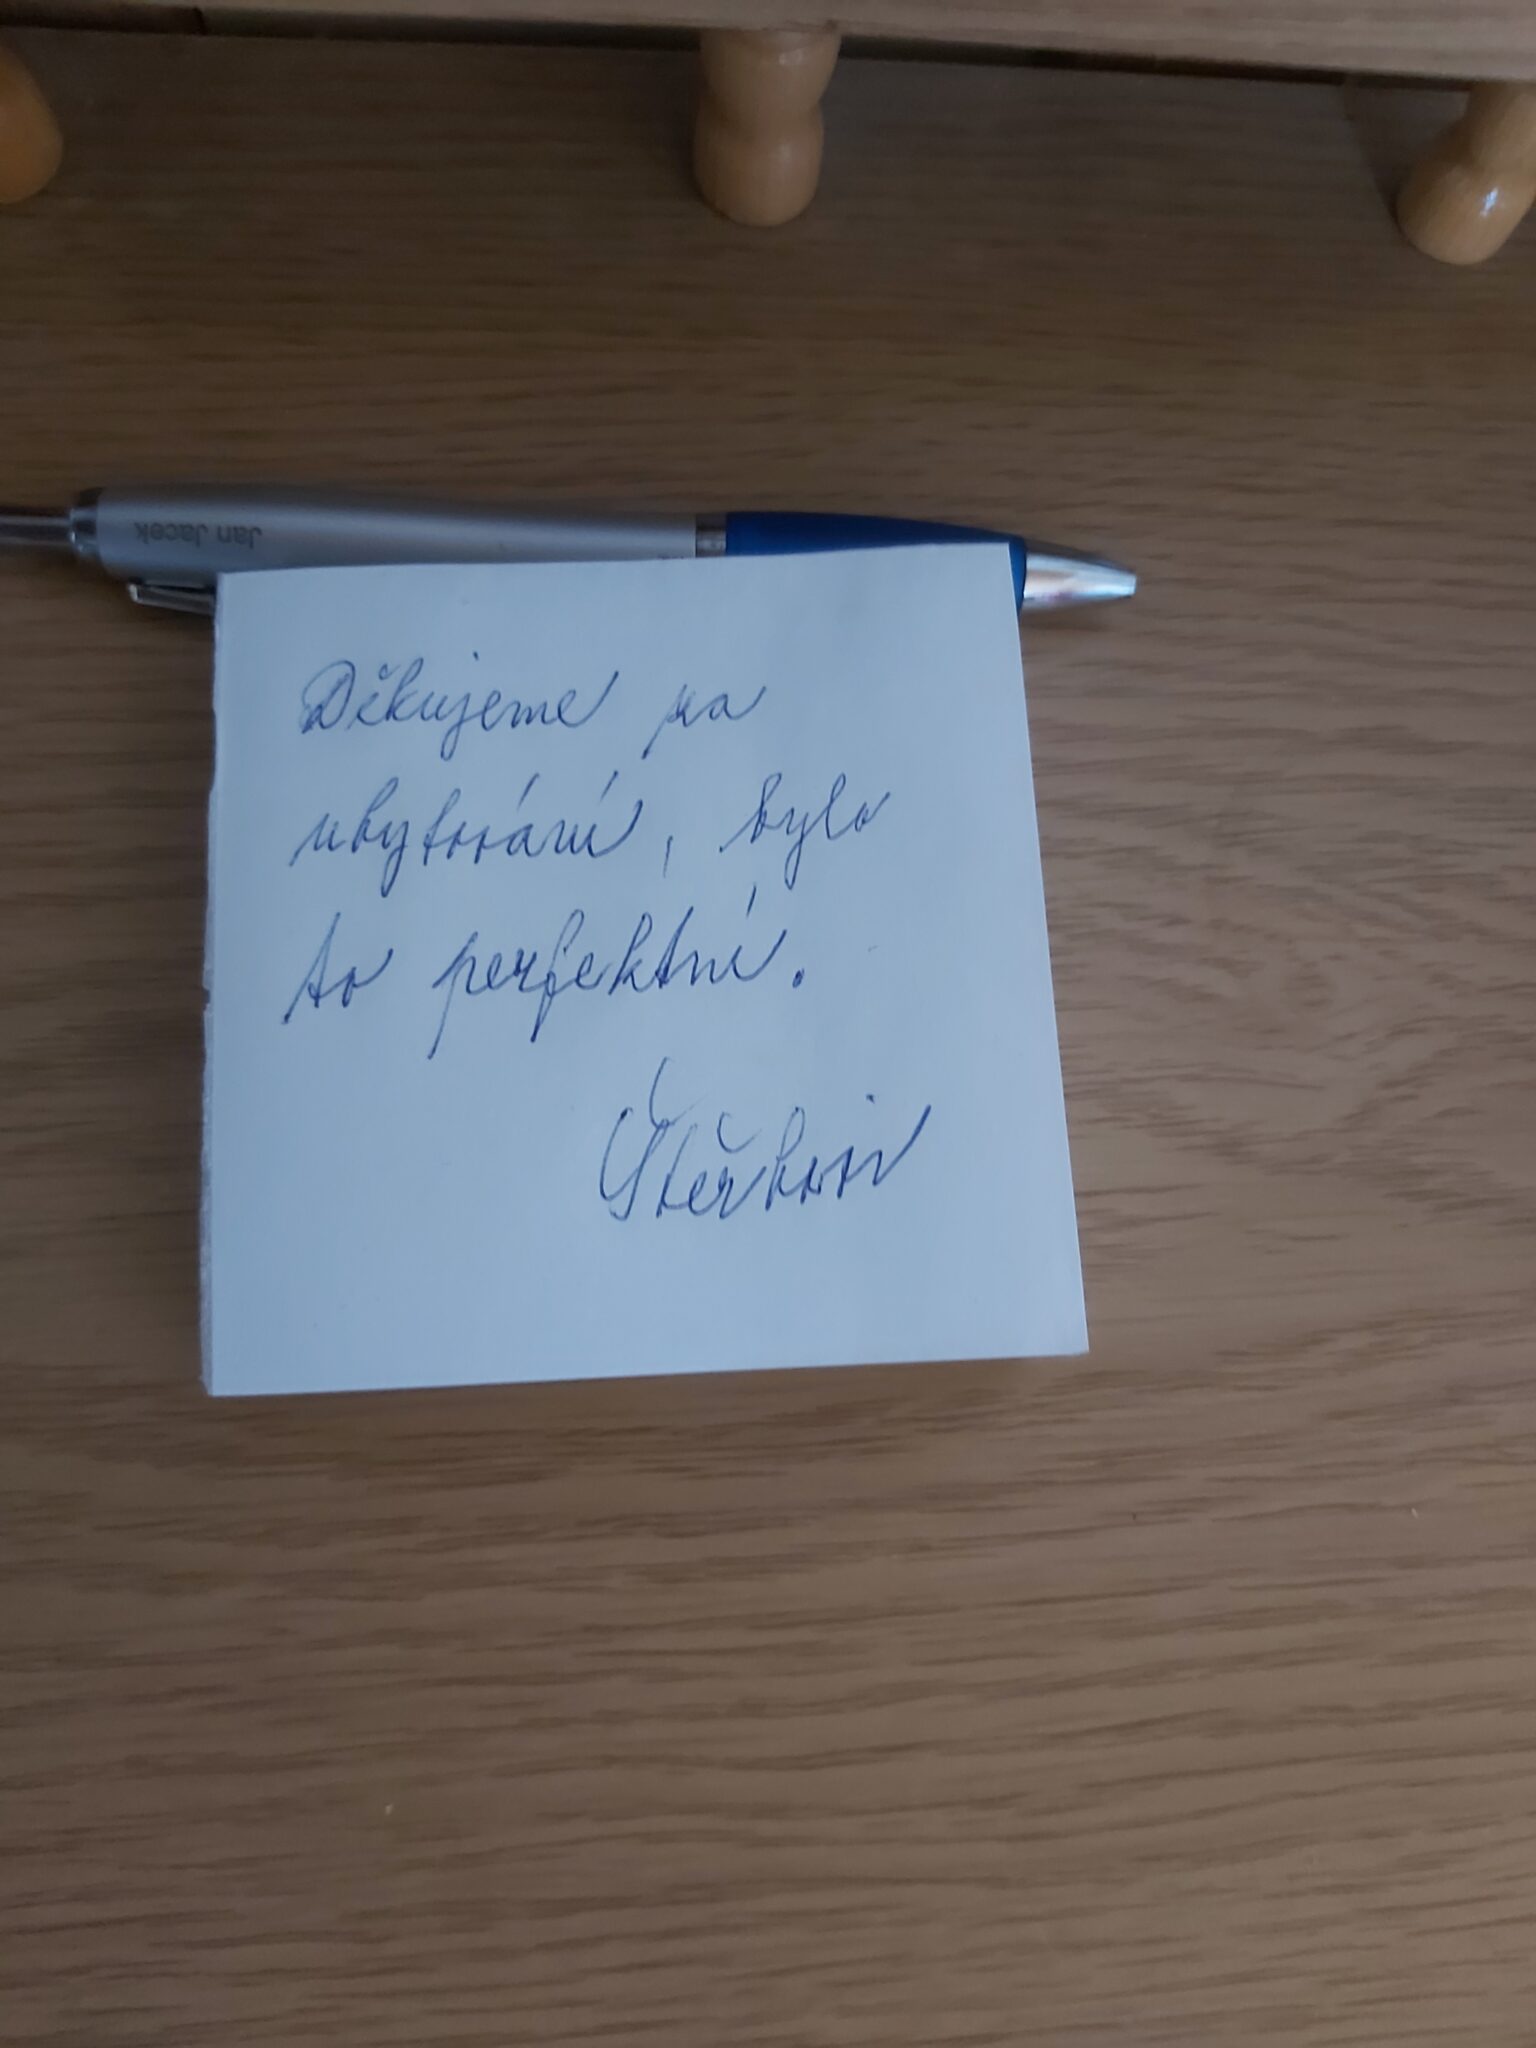 Jan Jacek
Děkujeme za
ubytování, bylo
to perfektní.
Štěrbovi